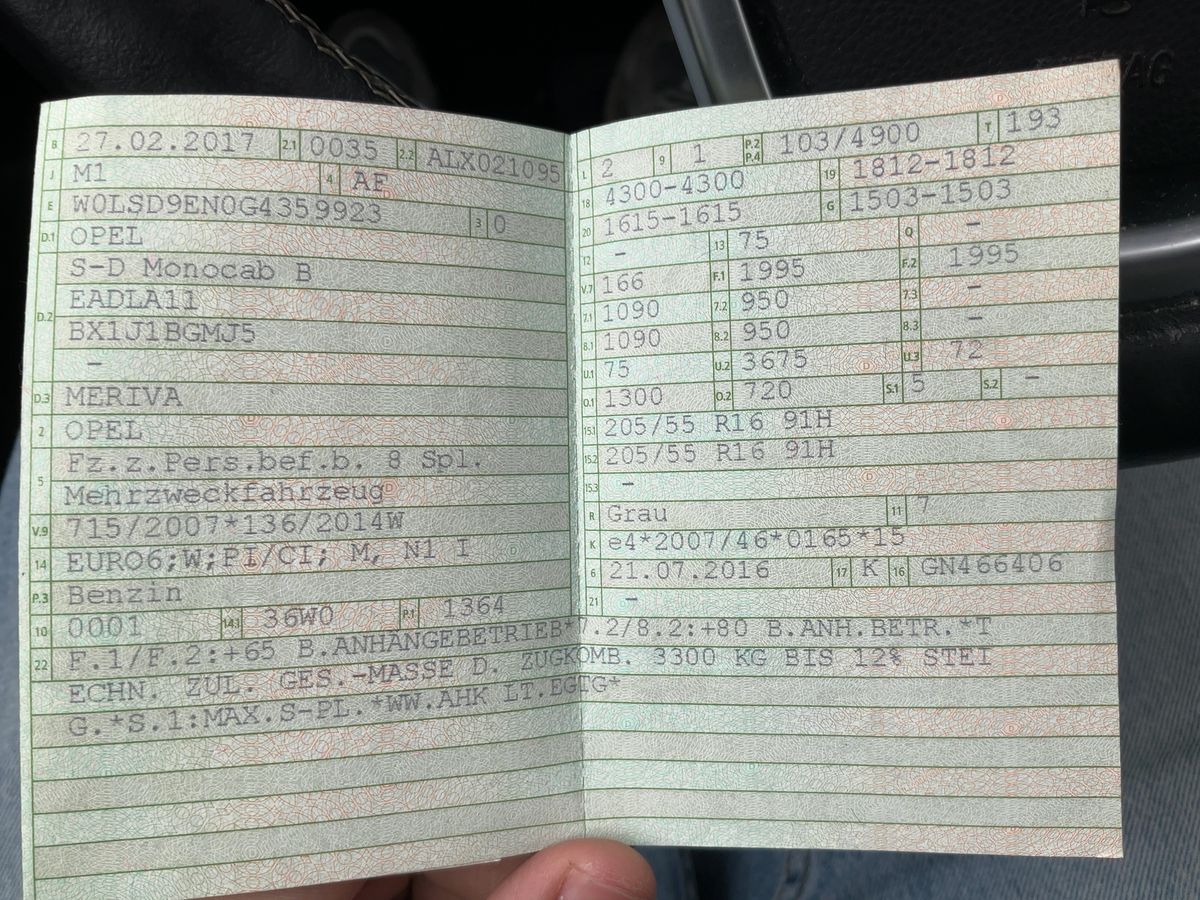 B 27.02.2017 2.1 0035 2.2 ALX021095
J M1 4 AF
E W0LSD9EN0G4359923 3 0
D.1 OPEL
D.2 S-D Monocab B
EADLA11
BX1J1BGMJ5
-
D.3 MERIVA
2 OPEL
5 Fz.z.Pers.bef.b. 8 Spl.
Mehrzweckfahrzeug
V.9 715/2007*136/2014W
14 EURO6;W;PI/CI; M, N1 I
P.3 Benzin
10 0001 14.1 36W0 P.1 1364
L 2 9 1 P.2 P.4 103/4900 T 193
18 4300-4300 19 1812-1812
20 1615-1615 G 1503-1503
12 - 13 75 Q -
V.7 166 F.1 1995 F.2 1995
7.1 1090 7.2 950 7.3 -
8.1 1090 8.2 950 8.3 -
U.1 75 U.2 3675 U.3 72
O.1 1300 O.2 720 S.1 5 S.2 -
15.1 205/55 R16 91H
15.2 205/55 R16 91H
15.3 -
R Grau 11 7
K e4*2007/46*0165*15
6 21.07.2016 17 K 16 GN466406
21 -
22 F.1/F.2:+65 B.ANHÄNGEBETRIEB*7.2/8.2:+80 B.ANH.BETR.*T
ECHN. ZUL. GES.-MASSE D. ZUGKOMB. 3300 KG BIS 12% STEI
G.*S.1:MAX.S-PL.*WW.AHK LT.EGTG*